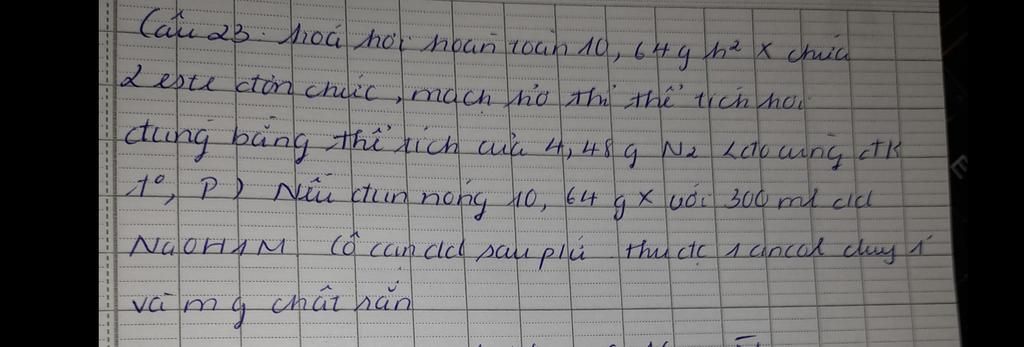 Câu 23. hoá hơi hoàn toàn 10,64g h² X chứa
2 este đơn chức, mạch hở thì thể tích hơi
đúng bằng thể tích của 4,48 g N2 <đo cùng đk
t°, P) Nếu đun nóng 10,64 g X với 300 ml dd
NaOH 1M Cô cạn dd sau pứ thu đc 1 ancol duy 1
và m g chất rắn